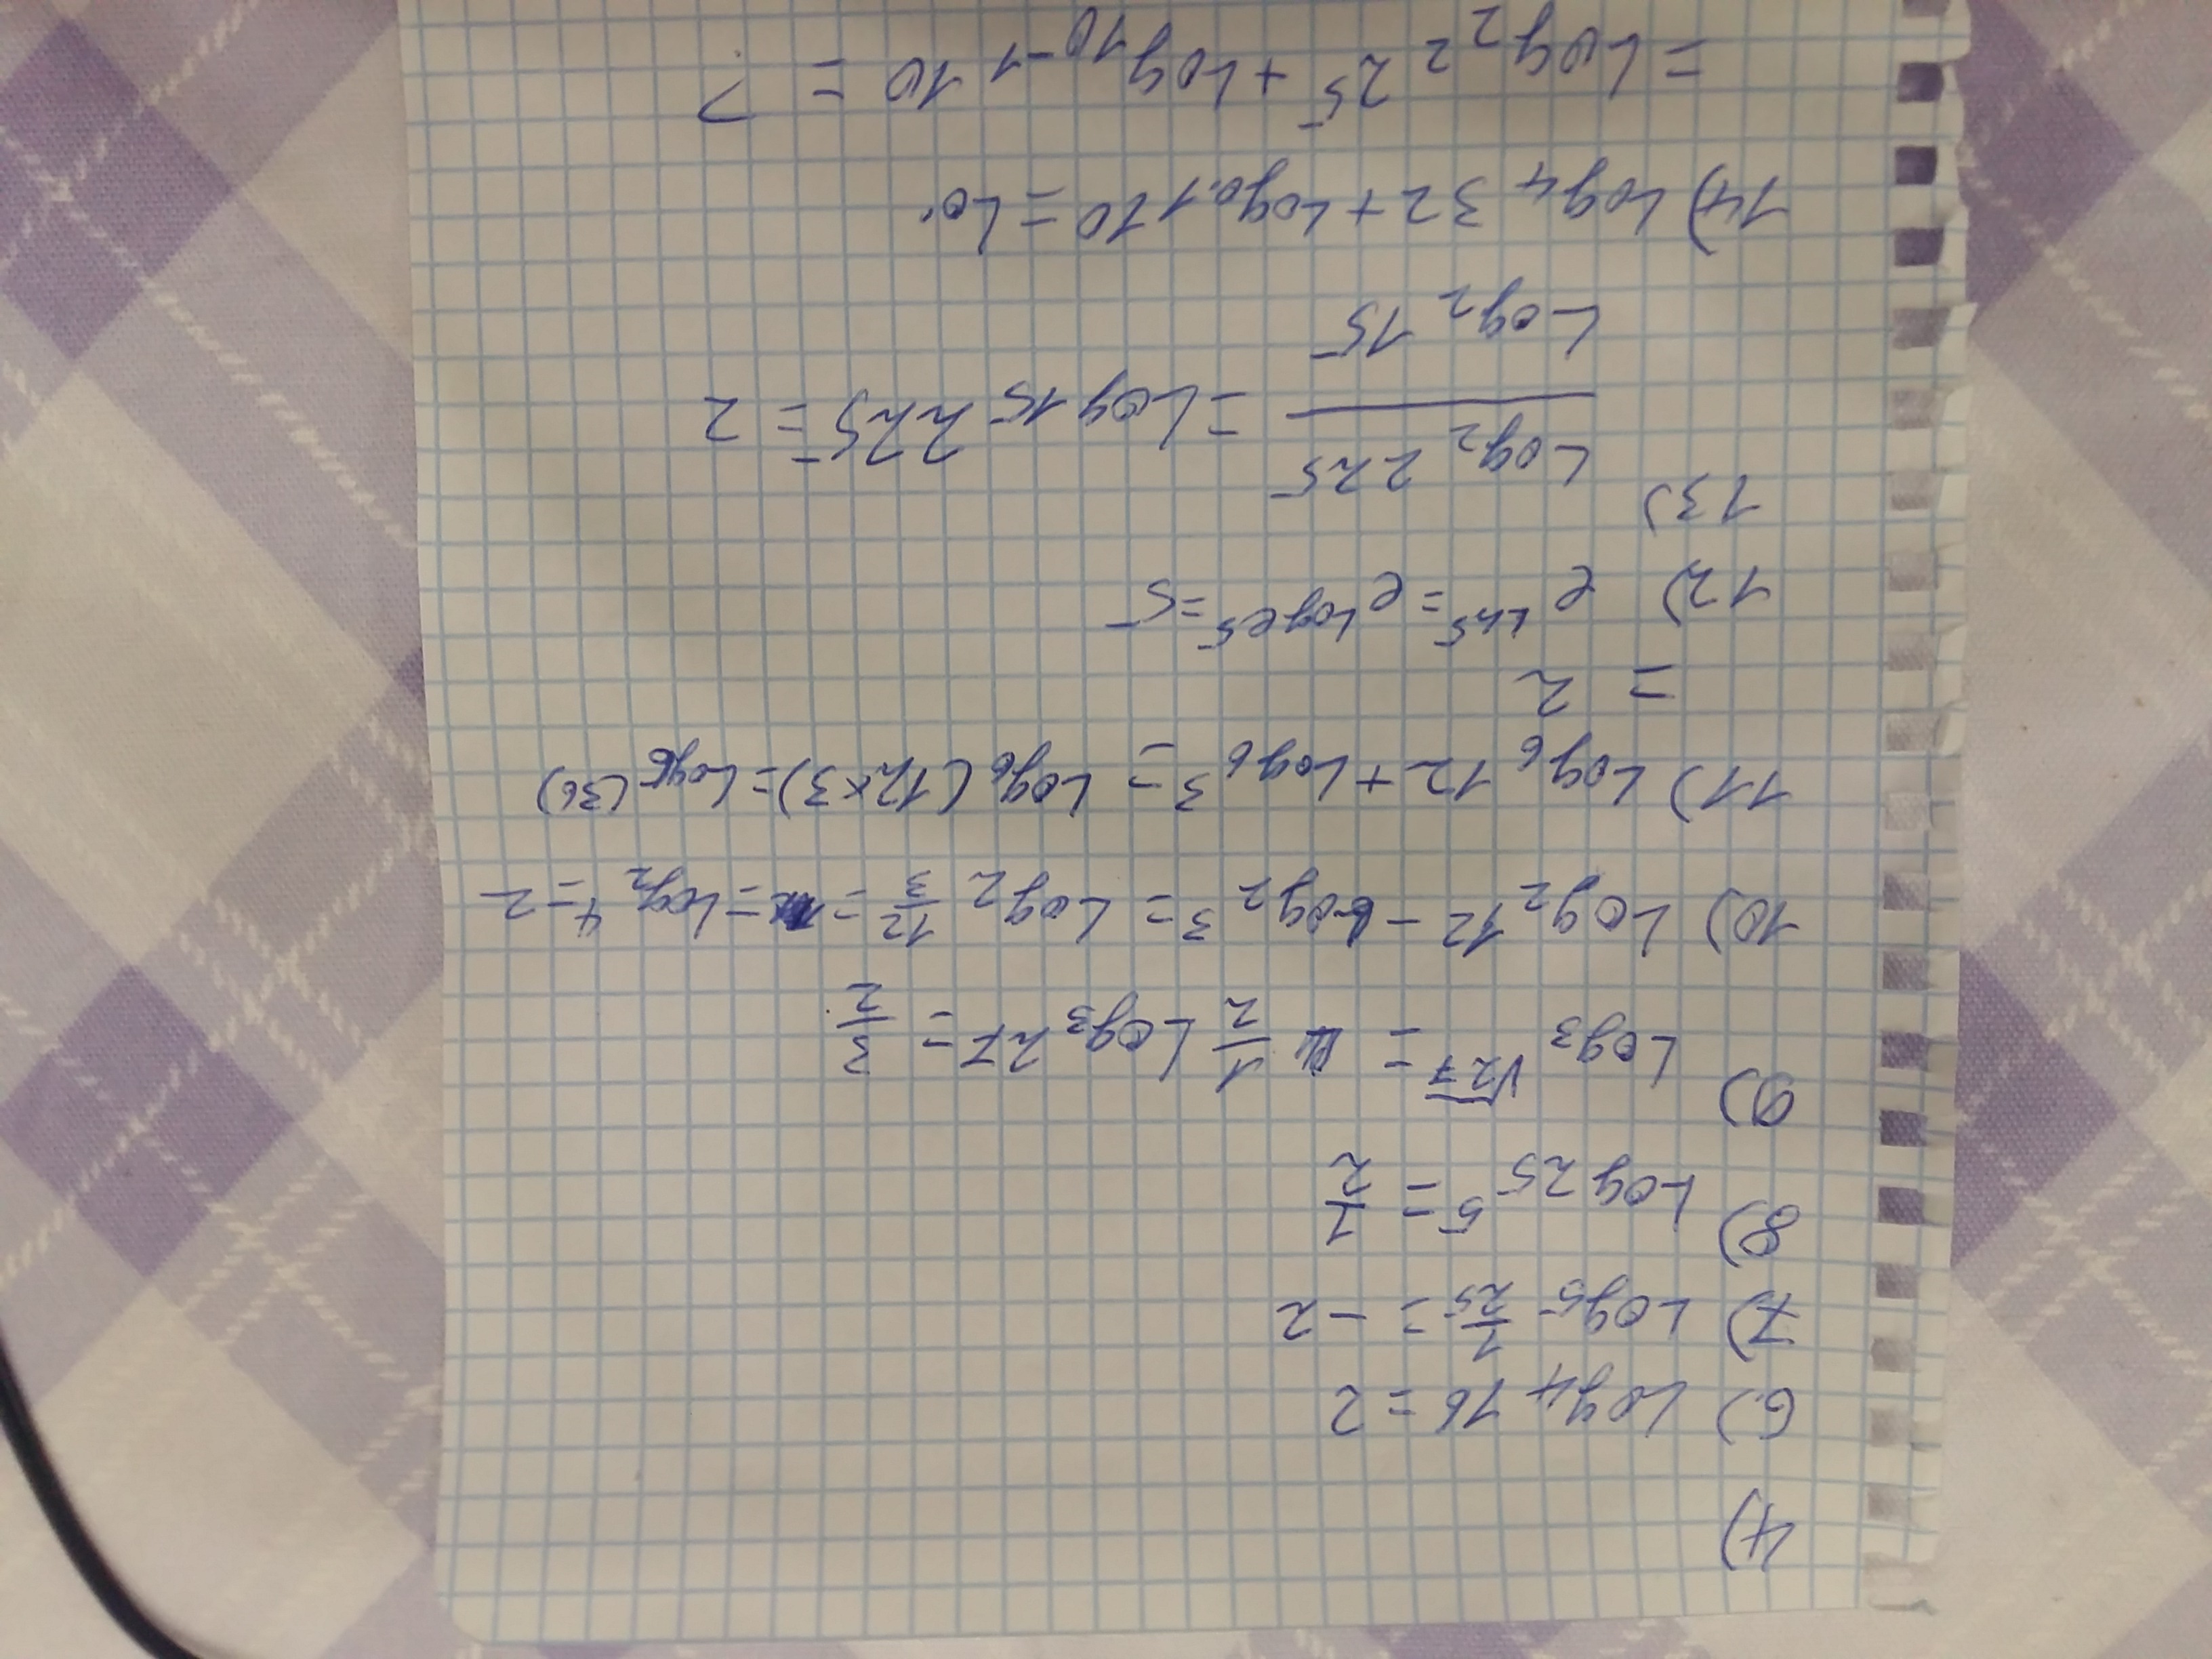 4)
6.) Log₄ 16 = 2
7) Log₅ 1/25 = -2
8) Log₂₅ 5 = 1/2
9) Log₃ √27 = 1/2 Log₃ 27 = 3/2.
10) Log₂ 12 - Log₂ 3 = Log₂ 12/3 = = Log₂ 4 = 2
11) Log₆ 12 + Log₆ 3 = Log₆ (12×3) = Log₆ (36)
= 2
12) e^Ln5 = e^Loge5 = 5
13) Log₂ 225 / Log₂ 15 = Log₁₅ 225 = 2
14) Log₄ 32 + Log₀.₁ 10 = Lo
= Log_2² 2⁵ + Log_10⁻¹ 10 = ?